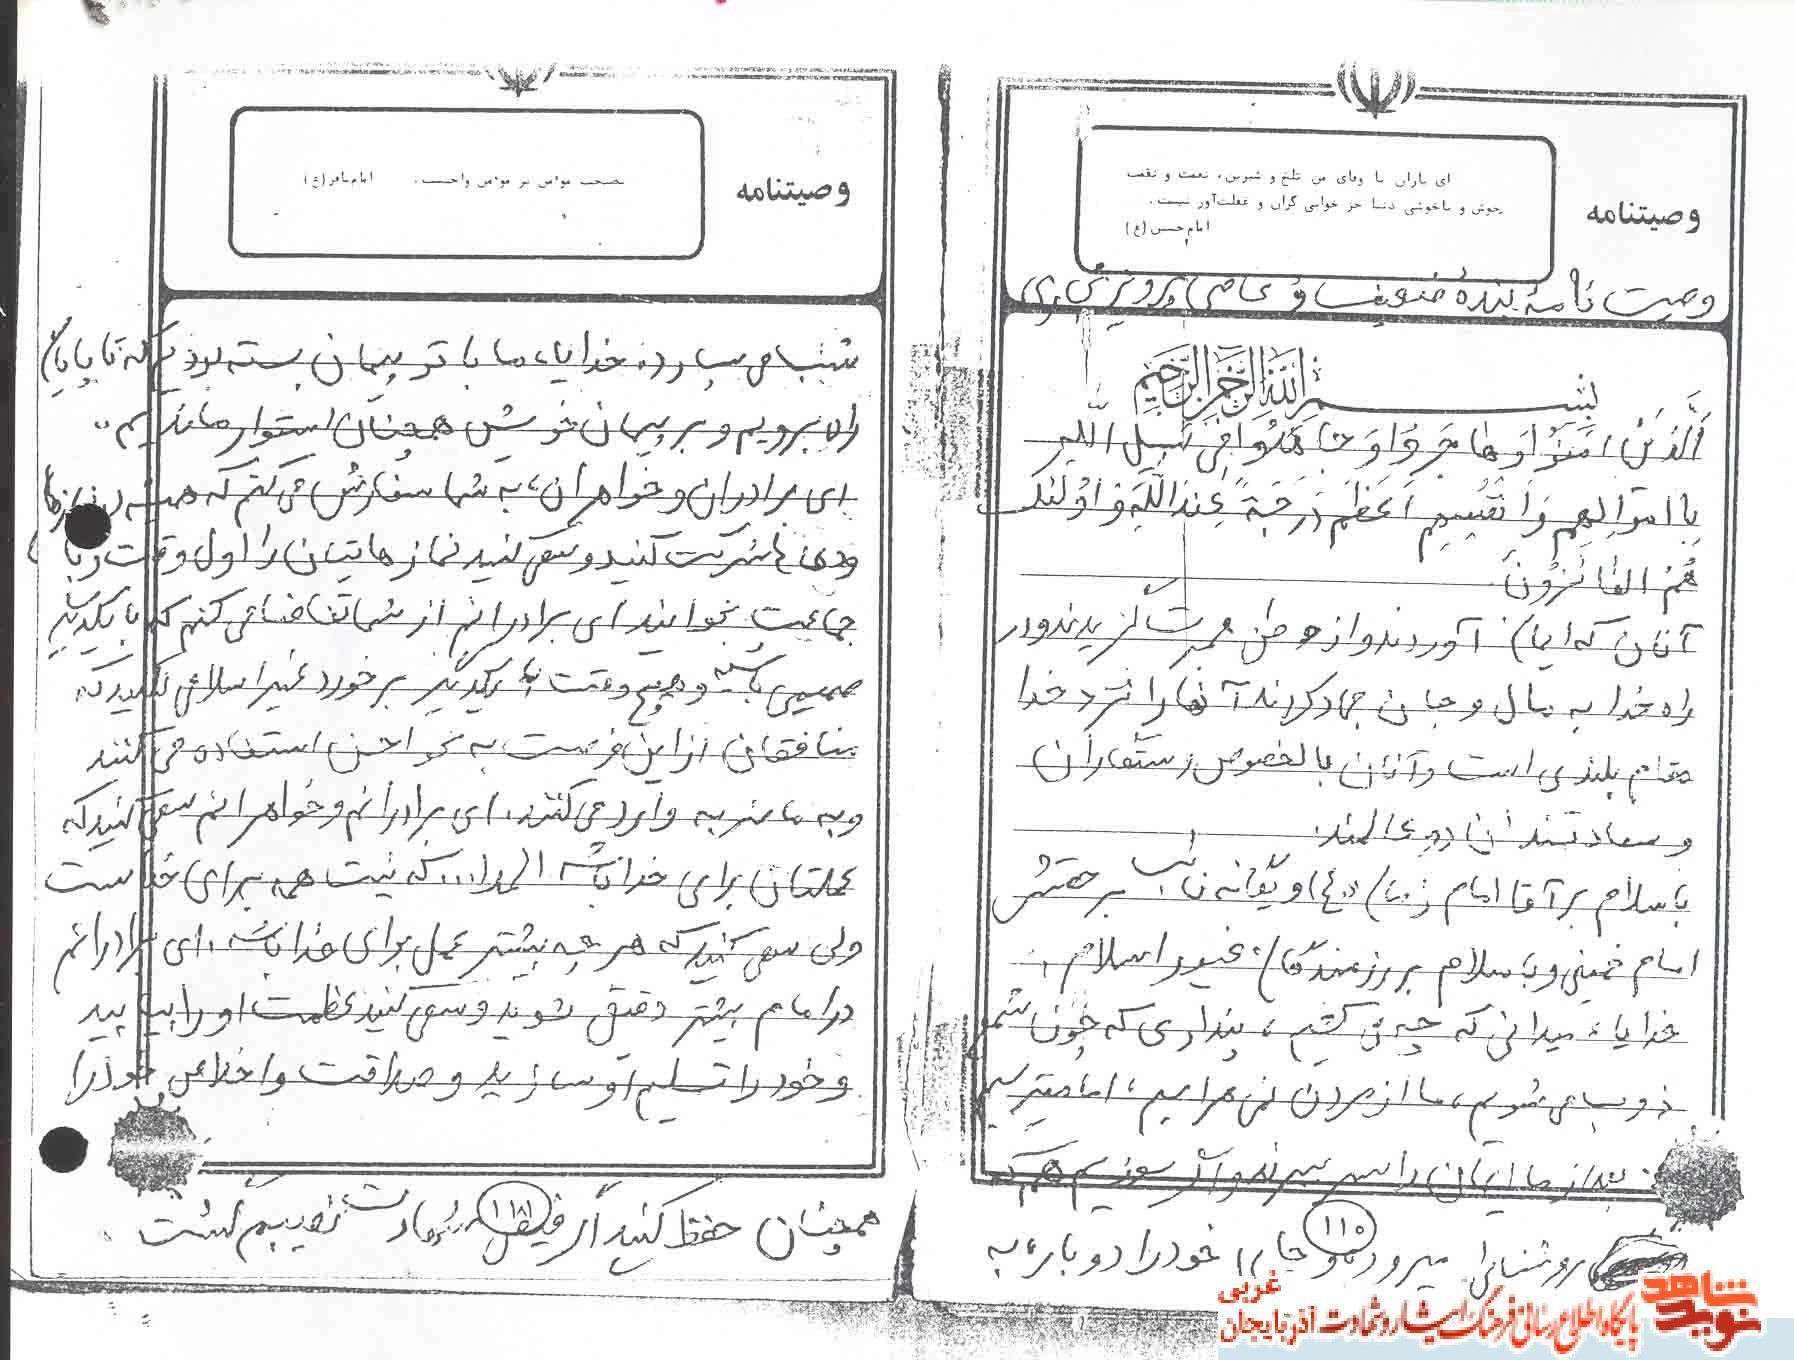 وصیتنامه
ای یاران با وفای من تلخ و شیرین، نعمت و نقمت
خوش و ناخوشی دنیا جز خوابی گران و غفلت‌آور نیست.
امام حسین (ع)
وصیت نامهٔ بنده ضعیف و عاصی پرویز
بسم الله الرحمن الرحیم
اَلَّذینَ امَنوُا وَ هاجَرُوا وَ جاهَدُوا فی سَبیلِ اللهِ
بِاَموالِهِم وَ اَنفُسِهِم اَعظَمُ دَرَجَةً عِندَ اللهِ وَ اوُلئِکَ
هُمُ الفائزوُنَ
آنان که ایمان آوردند و از وطن هجرت گزیدند و در
راه خدا به مال و جان جهاد کردند آنها را نزد خدا
مقام بلندی است و آنان بالخصوص رستگاران
و سعادتمندان دو عالمند.
با سلام بر آقا امام زمان (عج) و یگانه نائب بر حقش
امام خمینی و با سلام بر رزمندگان غیور اسلام.
خدایا، میدانی که چه می کشیم، پنداری که چون شمع
ذوب می شویم، ما از مردن نمی هراسیم، اما میترسیم
بعد از ما ایمان را سر ببرند و اگر بسوزیم هم که
روشنائی میرود و جای خود را دوباره به
۱۱۵
وصیتنامه
نصیحت مؤمن بر مؤمن واجبست. امام باقر (ع)
شب می سپارد. خدایا، ما با تو پیمان بسته بودیم که تا پایان
راه برویم و بر پیمان خویش همچنان استوار ماندیم.
ای برادران و خواهران، به شما سفارش می کنم که همیشه در نمازها
و دعاها شرکت کنید و سعی کنید نمازهایتان را اول وقت و با
جماعت بخوانید ای برادرانم از شما تقاضا می کنم که با یکدیگر
صمیمی باشید و هیچ وقت با یکدیگر برخورد غیر اسلامی نکنید که
منافقان از این فرصت به نحو احسن استفاده می کنند
و به ما ضربه وارد می کنند. ای برادرانم و خواهرانم سعی کنید که
عملتان برای خدا باشد الحمدا... که نیت همه برای خداست
ولی سعی کنید که هر چه بیشتر عمل برای خدا باشد. ای برادرانم
در امام بیشتر دقیق شوید و سعی کنید عظمت او را بیابید
و خود را تسلیم او سازید و صداقت و اخلاص خود را
همچنان حفظ کنید اگر فیض شهادت نصیبم گشت
۱۱۸۱
نوید شاهد
پایگاه اطلاع رسانی فرهنگ ایثار و شهادت آذربایجان غربی